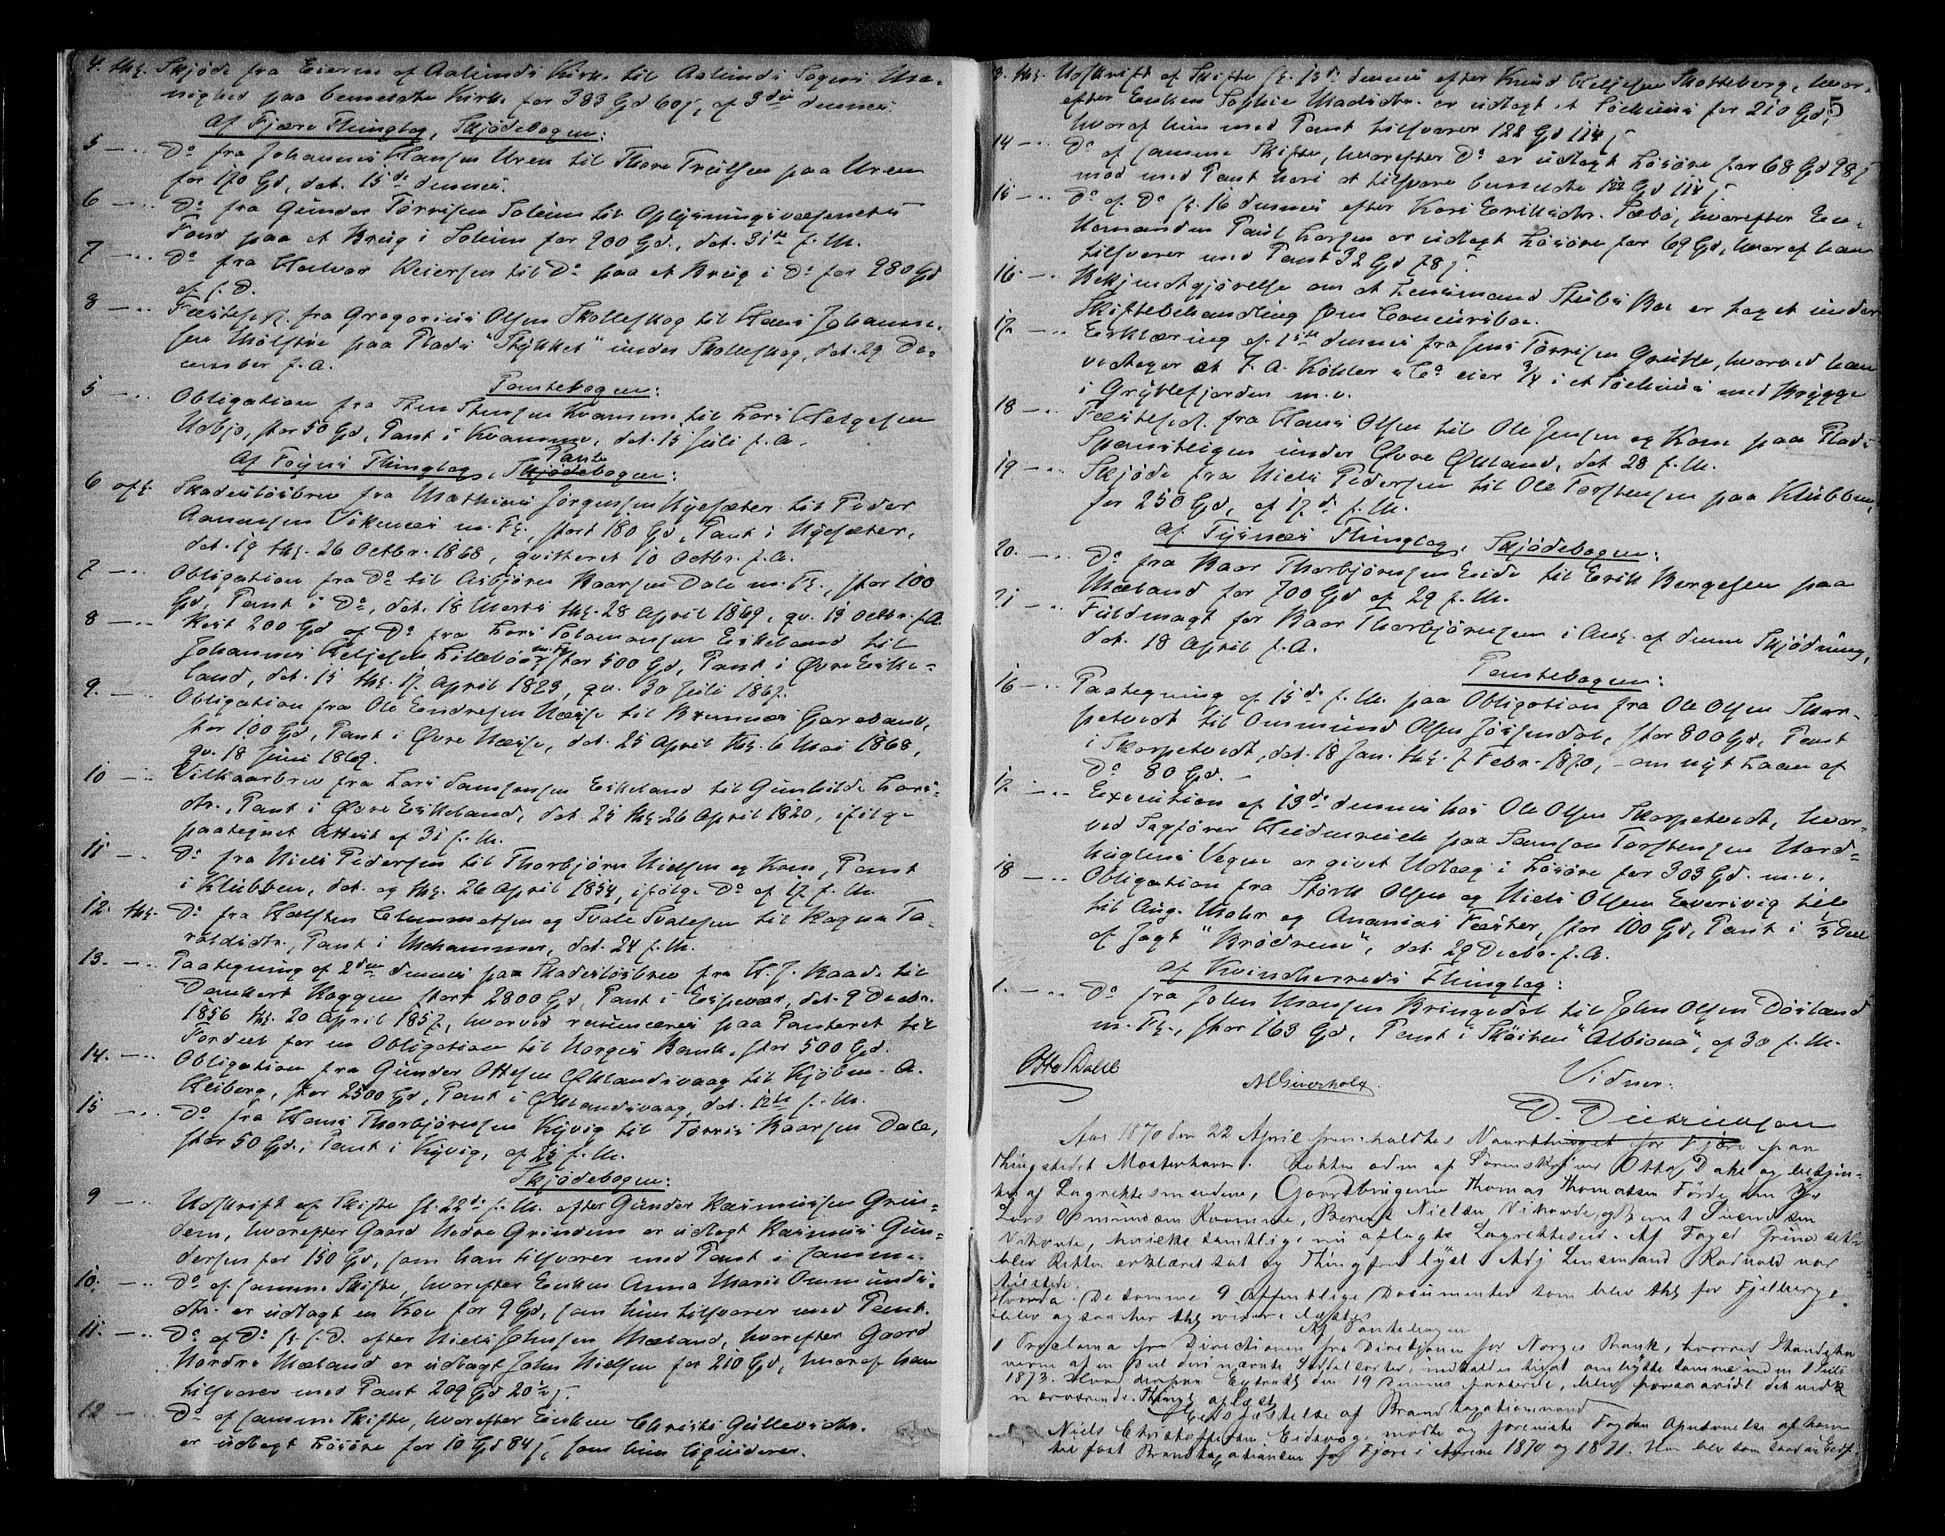 4. thl. Skjøde fra Eierne af Aalunds Kirke til Aalunds Sogns Me-
nighed paa bemeldte Kirke for 383 Gd 60 s, af 3die dennes
Af Fjære Thinglag, Skjødebogen:
5 — .. Do fra Johannes Hansen Uren til Thore Truelsen paa Uren
for 170 Gd, dat. 15de dennes.
6 — .. Do fra Gunder Tørrisen Soleim til Oplysningsvæsenets
Fond paa et Brug i Soleim for 900 Gd., dat. 31te f. M.
7 — .. Do fra Halvor Reiersen til Do paa et Brug i Do for 980 Gd
af s. D.
8 — .. Fæstesedl. fra Gregorius Olsen Skolleskog til Hans Johanne-
sen paa Plads "Stykket" under Skolleskog, dat. 29 De-
cember f. A.
Pantebogen:
5 — .. Obligation fra Sten Stensen Kvamme til Lars Helgesen
Udbjo, stor 50 Gd, Pant i Kvamme, dat. 15 Juli f. A.
Af Føyns Thinglag, Skjødebogen: Pante
6 afl. Skadesløsbrev fra Mathias Jørgensen Nysæter til Peder
Aamundsen Vikenæs m. Fl., stort 180 Gd, Pant i Nysæter,
dat. 19 thl. 26 Octbr. 1868, qvitteret 10 Octbr. f. A.
7 — .. Obligation fra Do til Asbjørn Baarsen Dale m. Fl., stor 100
Gd, Pant i Do, dat. 18 Marts thl. 28 April 1869, qv. 19 Octbr. f. A.
8 — .. Rest 200 Gd af Do fra Lars Salamonsen Eskeland til
Johannes Helgesen Lillebø m. fl., stor 500 Gd, Pant i Øvre Eske-
land, dat. 15 thl. 17. April 1823, qv. 30 Juli 1867.
9. — .. Obligation fra Ole Endresen Næsse til Bremnæs
stor 100 Gd, Pant i Øvre Næsse, dat. 25 April thl. 6 Mai 1868,
qv. 18 Juni 1869.
10 — .. Vilkaarbrev fra Lars Samsonsen Eskeland til Gunhilde Lars-
dtr., Pant i Øvre Eskeland, dat. 25 thl. 26 April 1820, ifølge
paategnet Attest af 31 f. M.
11 — .. Do fra Niels Pedersen til Thorbjørn Nielsen og Kone, Pant
i Klubben, dat. og thl. 26 April 1854, ifølge Do af 17 f. M.
12. thl. Do fra Halsten Clemmetsen og Svale Svalesen til Ragna Ta-
raldsdtr., Pant i Mehammer, dat. 24 f. M.
13. — .. Paategning af 2den dennes paa Skadesløsbrev fra H. J. Raade til
Danckert Krogen stort 2800 Gd, Pant i Espevær, dat. 9 Decbr.
1856 thl. 20 April 1857, hvorved renunceres paa Panteret til
Fordeel for en Obligation til Norges Bank, stor 500 Gd.
14. — .. Obligation fra Gunder Ottesen Øklandsvaag til Kjøbm. A.
Heiberg, stor 2500 Gd, Pant i Øklandsvaag, dat. 12te f. M.
15 — .. Do fra Hans Thorbjørnsen Kyvig til Tørris Baarsen Dale,
stor 50 Gd., Pant i Kyvig, af 25 f. M.
Skjødebogen:
9 — .. Udskrift af Skifte sl. 22de f. M. efter Gunder Rasmussen Grin-
dem, hvorefter Gaard Nedre Grindem er udlagt Rasmus Gun-
dersen for 150 Gd, som han tilsvarer med Pant i samme.
10. — .. Do af samme Skifte, hvorefter Enken Anna Marie Ommunds-
dtr. er udlagt en Ko for 9 Gd, som hun tilsvarer med Pant.
11. — .. Do af Do sl. s. D. efter Niels Johnsen Mæland, hvorefter Gaard
Nordre Mæland er udlagt John Nielsen for 210 Gd, hvoraf han
tilsvarer med Pant 209 Gd 20 2/5 s.
12 — .. Do af samme Skifte, hvorefter Enken Christi Gullevsdtr.
er udlagt Løsøre for 10 Gd 84 s, som hun liqviderer.
5
3. thl. Udskrift af Skifte sl. 15de dennes efter Knud Helgesen Skotteberg, hvor-
efter Enken Sophie Madsdtr. er udlagt et Søehuus for 210 Gd,
hvoraf hun med Pant tilsvarer 122 Gd 114 s
14 — .. Do af samme Skifte, hvorefter Do er udlagt Løsøre for 68 Gd 98 s
mod med Pant heri at tilsvare bemeldte 122 Gd 114 s
15 — .. Do af Do sl. 16 dennes efter Kari Eriksdtr. Sæbø, hvorefter En-
kemanden Paul Larsen er udlagt Løsøre for 69 Gd, hvoraf han
tilsvarer med Pant 32 Gd 78 s.
16. — .. Bekjendtgjørelse om at Lensmand Stubs Bo er taget under
Skiftebehandling som Concursbo.
17. — .. Erklæring af 1ste dennes fra Jens Tørrisen Grutle, hvorved han
vedtager at J. A. Køhler & Co eier 3/4 i et Søehuus med Brygge
i Gryblefjorden m. v.
18 — .. Fæstesedl. fra Hans Olsen til Ole Jensen og Kone paa Plads
Spansteigen under Øvre Økland, dat. 28 f. M.
19 — .. Skjøde fra Niels Pedersen til Ole Torstensen paa Klubben,
for 250 Gd, af 17de f. M.
Af Tysnæs Thinglag, Skjødebogen:
20. — .. Do fra Baar Thorbjørnsen Eide til Erik Børgesen paa
Mæland for 700 Gd af 29 f. M.
21 — .. Fuldmagt for Baar Thorbjørnsen i Anl. af denne Skjødning,
dat. 18 April f. A.
Pantebogen:
16 — .. Paategning af 15de f. M. paa Obligation fra Ole Olsen Skor-
petvedt til Ommund Olsen Jøssendal, stor 800 Gd, Pant
i Skorpetvedt, dat. 18 Jan. thl. 7 Febr. 1870, – om nyt Laan af
Do 80 Gd. –
17. — .. Execution af 13de dennes hos Ole Olsen Skorpetvedt, hvor-
ved Sagfører Heidenreich paa Samson Torstensen Nord-
huglens Vegne er givet Udlæg i Løsøre for 303 Gd. m. v.
18 — .. Obligation fra Størk Olsen og Niels Olsen Eversvig
til Aug. Mohr og Ananias Fæster, stor 100 Gd, Pant i 1/3 Deel
af Jagt "Brødrene", dat. 29 Decbr. f. A.
Af Kvindherreds Thinglag:
1. — .. Do fra John Monsen Bringedal til John Olsen Døsland
m. Fl., stor 163 Gd, Pant i Skøiten "Albiona", af 30 f. M.
Otto Dahl
Vidner:
Aar 1870 den 22 April fremholdtes Vaarthinget for Fjære paa
Thingstedet Mosterhavn. Retten adm. af Sorenskriver Otto J Dahl og betjen-
tes af Lagrettesmændene, Gaardbrugerne Thomas Thomassen Førde,
Lars Osmundsen Kvamme, Berent Nielsen Vihovde, og Berent Svendsen
Vihovde, hvilke samtlige nu aflagte Lagrettesed. Af Foged Grüner
blev Retten erklæret sat og Thingfred lyst. Afg Lensmand Rødvold var
tilstede.
De samme 9 offentlige Documenter som blev thl for Fjelberg
blev ogsaa her thl videre læstes
Af Pantebogen
1 Proclama fra Directionen for Norges Bank, hvorved Ihændeha-
verne af en Deel deri nævnte Sedler indkaldes til at ombytte samme inden 1 Juli
1873.
Thing aflæst
Beskikkelse af Brandtaxationsmænd
Niels Christoffersen Eidsvog mødte og foreviste Fogdens Opnævnelse af ham
til fast Brandtaxationsm for Fjære i Aarene 1870 og 1871. Han blev som saadan